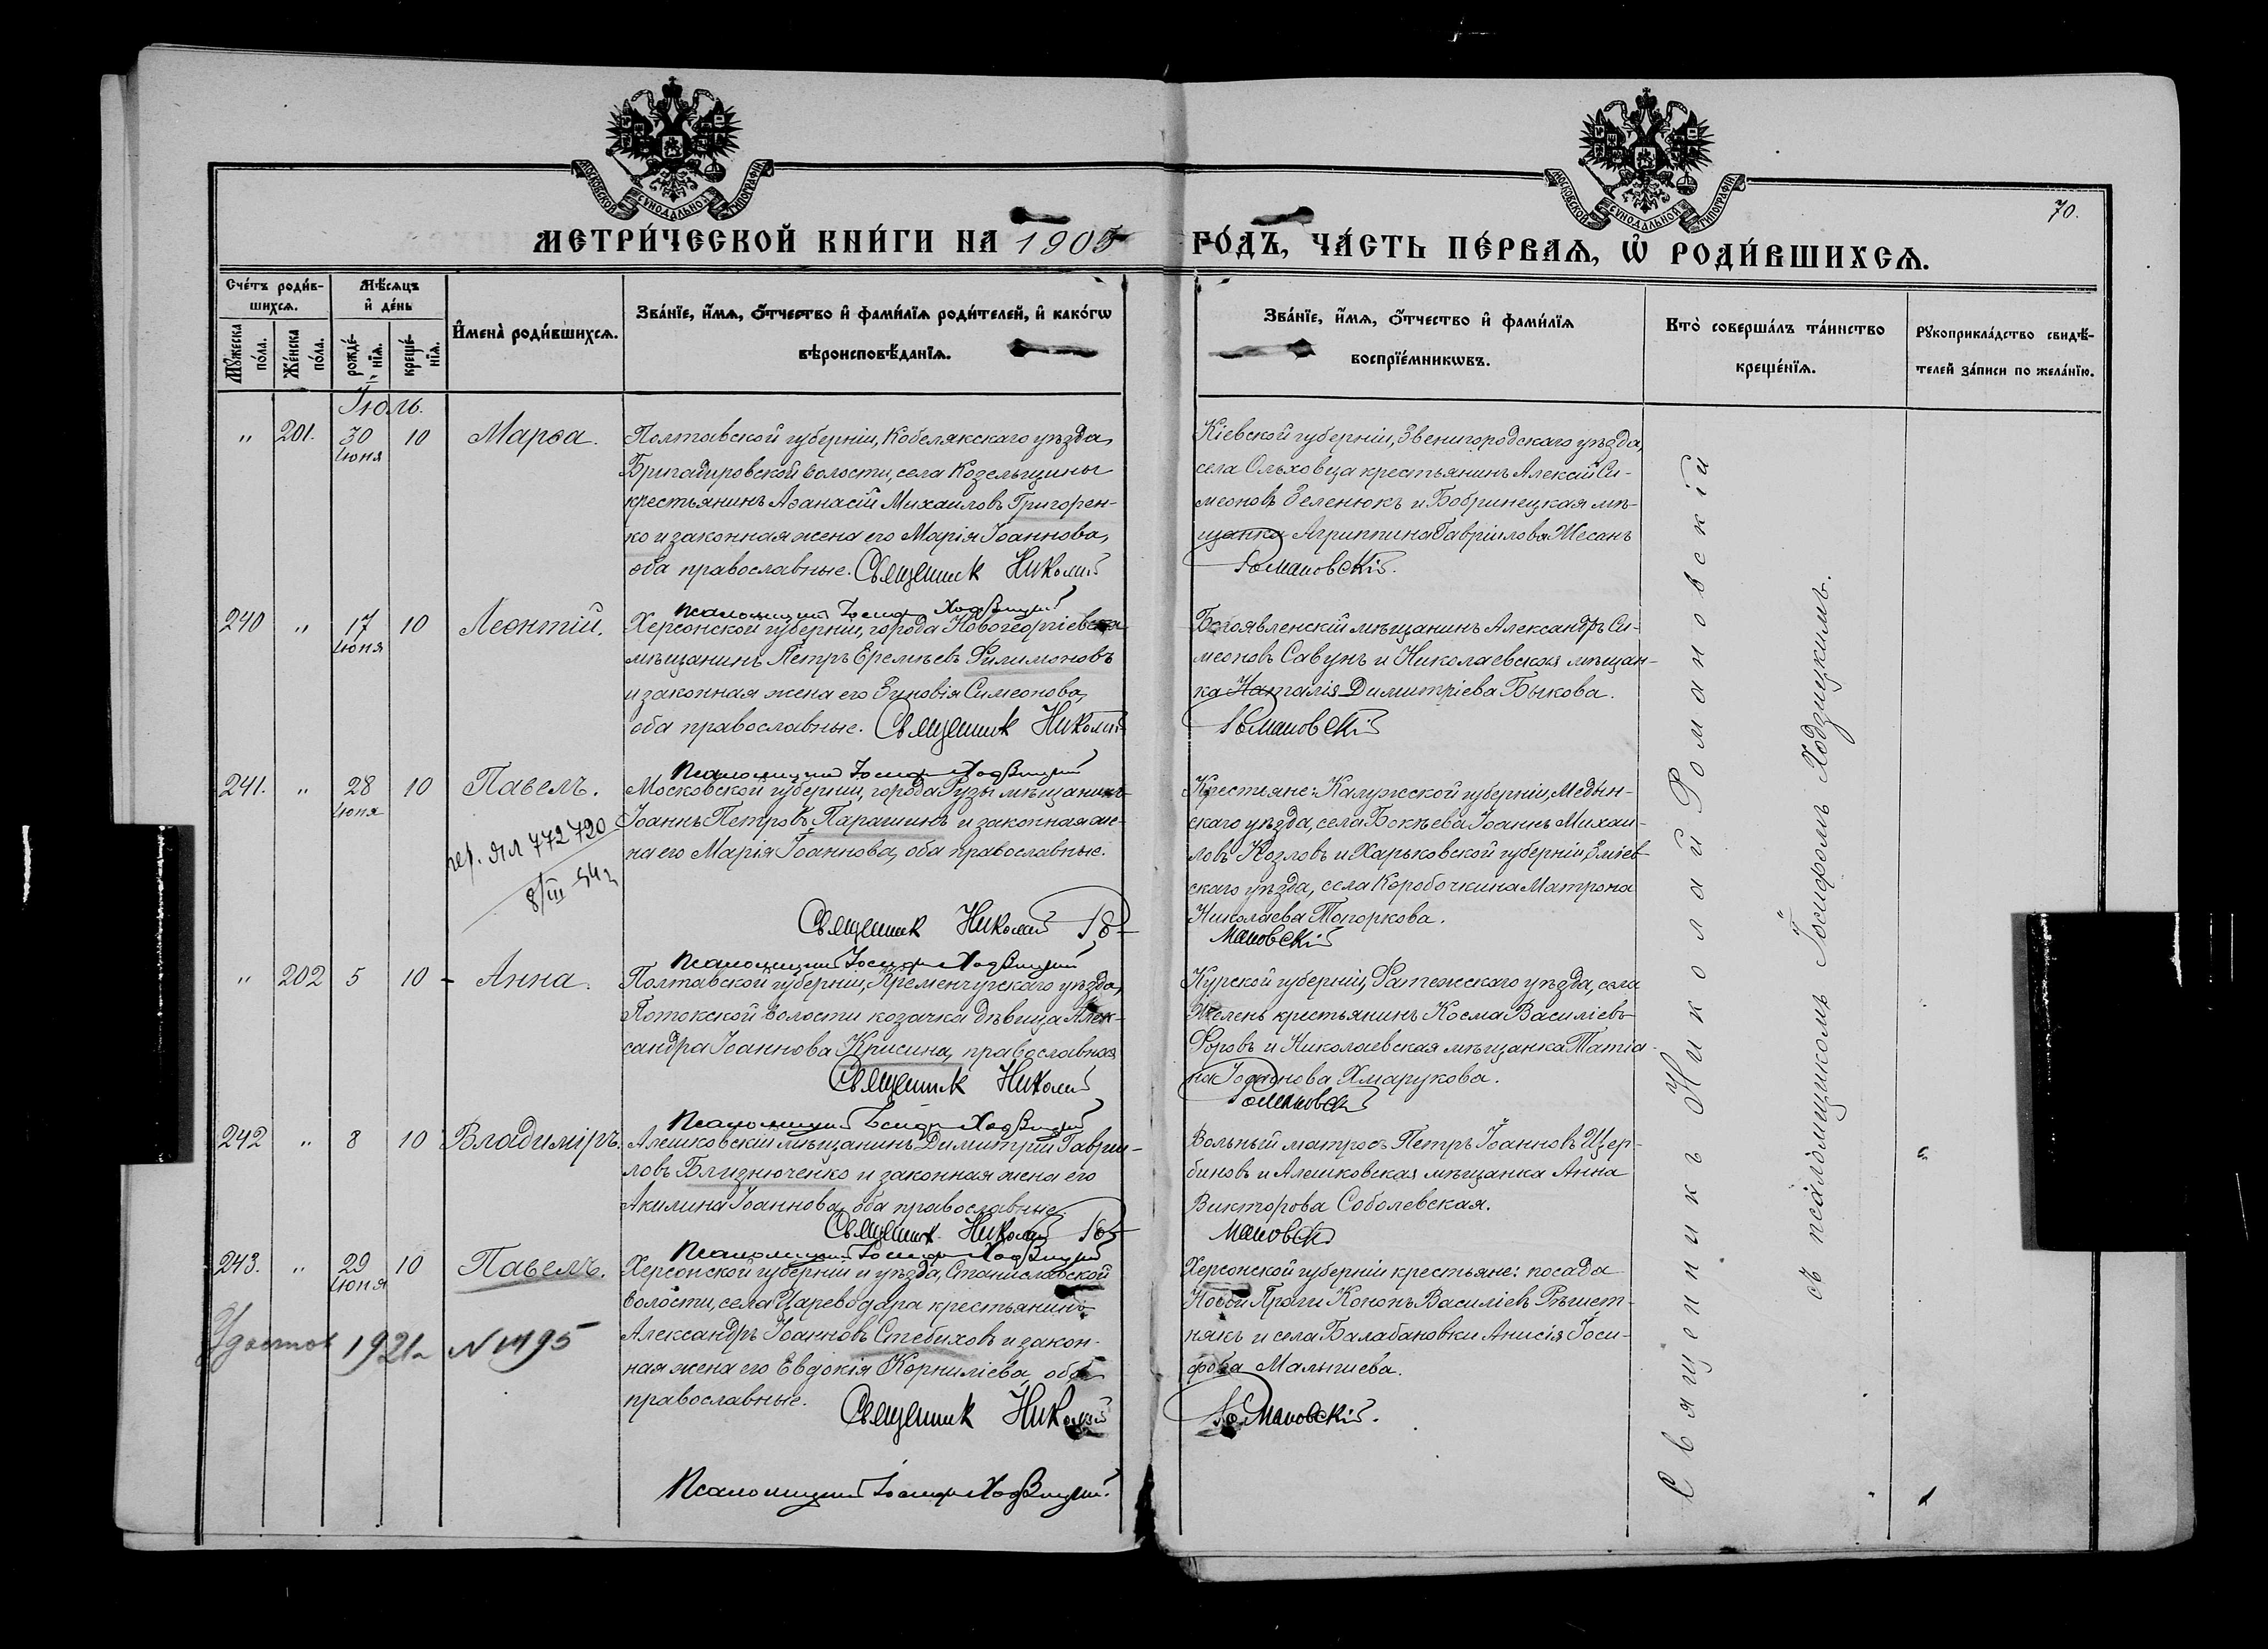 МОСКОВСКОЙ СѴНОДАЛЬНОЙ ТИПОГРАФІИ
МОСКОВСКОЙ СѴНОДАЛЬНОЙ ТИПОГРАФІИ
70.
МЕТРИ́ЧЕСКОЙ КНИ́ГИ НА 1905
ГО́ДЪ, ЧА́СТЬ ПЕ́РВАѦ, Ѡ҆ РОДИ́ВШИХСѦ.
Сче́тъ роди́в-
шихсѧ.
Мꙋ́жеска по́ла.
Же́нска по́ла.
Мѣ́сѧцъ
и҆ де́нь
рожде́-
нїѧ.
креще́-
нїѧ.
И҆мена̀ роди́вшихсѧ.
Зва́нїе, и҆́мѧ, ѻ҆́тчество и҆ фамн́лїѧ роди́телей, и҆ како́гѡ
вѣроисповѣ́данїѧ.
Зва́нїе, и҆́мѧ, ѻ҆́тчество и҆ фами́лїѧ
воспрїе́мникѡвъ.
Кто̀ соверша́лъ та́инство
креще́нїѧ.
Рꙋкоприкла́дство свидѣ́-
телей за́писи по жела́нїю.
Іюль.
" 201. 30 10 Марѳа.
Іюня
Полтавской губерніи, Кобелякскаго уѣзда,
Бригадировской волости, села Козельщины
крестьянинъ Аѳанасій Михаиловъ Григорен-
ко и законная жена его Марія Іоаннова,
оба православные. Священник Николай
Кіевской губерніи, Звенигородскаго уѣзда,
села Ольховца крестьянинъ Алексій Си-
меоновъ Теленюкъ и Бобринецкая мѣ-
щанка Агриппина Гавріилова Месанъ
Романовскій.
Псаломщикъ Іосифъ Ходзицкій
240 " 17 10 Леонтій.
Іюня
Херсонской губерніи, города Новогеоргіевска
мѣщанинъ Петръ Еремѣевъ Филимоновъ
и законная жена его Зиновія Симеонова,
оба православные. Священник Николай
Богоявленскій мѣщанинъ Александръ Си-
меоновъ Савунъ и Николаевская мѣщан-
ка Наталія Димитріева Быкова.
Романовскій
Псаломщикъ Іосифъ Ходзицкій
241. " 28 10 Павелъ.
Іюня
772720
8/III 54г
Московской губерніи, города Рузы мѣщанинъ
Іоаннъ Петровъ Парашинъ и законная же-
на его Марія Іоаннова, оба православные.
Священник Николай Ро-
Крестьяне: Калужской губерніи, Медын-
скаго уѣзда, села Бокѣева Іоаннъ Михаи-
ловъ Козловъ и Харьковской губерніи, Зміев-
скаго уѣзда, села Коробочкина Матрона
Николаева Топоркова.
мановскій
Псаломщикъ Іосифъ Ходзицкій
" 202 5 10 - Анна.
Полтавской губерніи, Кременчугскаго уѣзда,
Потокской волости козачка дѣвица Алек-
сандра Іоаннова Крисина, православная
Священник Николай
Курской губерніи, Фатежскаго уѣзда, села
крестьянинъ Косма Василіевъ
и Николаевская мѣщанка Татіа-
на Іоаннова Хмарукова.
Романовскій
Псаломщикъ Іосифъ Ходзицкій
242 " 8 10 Владиміръ.
Алешковскій мѣщанинъ Димитрій Гавріи-
ловъ Близнюченко и законная жена его
Акилина Іоаннова, оба православные.
Священник Николай Ро-
Вольный матросъ Петръ Іоанновъ Щер-
биновъ и Алешковская мѣщанка Анна
Викторова Соболевская.
мановскій
Псаломщикъ Іосифъ Ходзицкій
243. " 29 10 Павелъ.
Іюня
1921г N
Херсонской губерніи и уѣзда, Станиславской
волости, села Цареводара крестьянинъ
Александръ Іоанновъ Стебиховъ и закон-
ная жена его Евдокія Корниліева, оба
православные. Священник Николай
Херсонской губерніи крестьяне: посада
Новой Праги Кононъ Василіевъ Рѣшет-
някъ и села Балабановки Анисія Іоси-
фова Малышева.
Романовскій.
Псаломщикъ Іосифъ Ходзицкій.
Священникъ Николай Романовскій
съ псаломщикомъ Іосифомъ Ходзицкимъ.